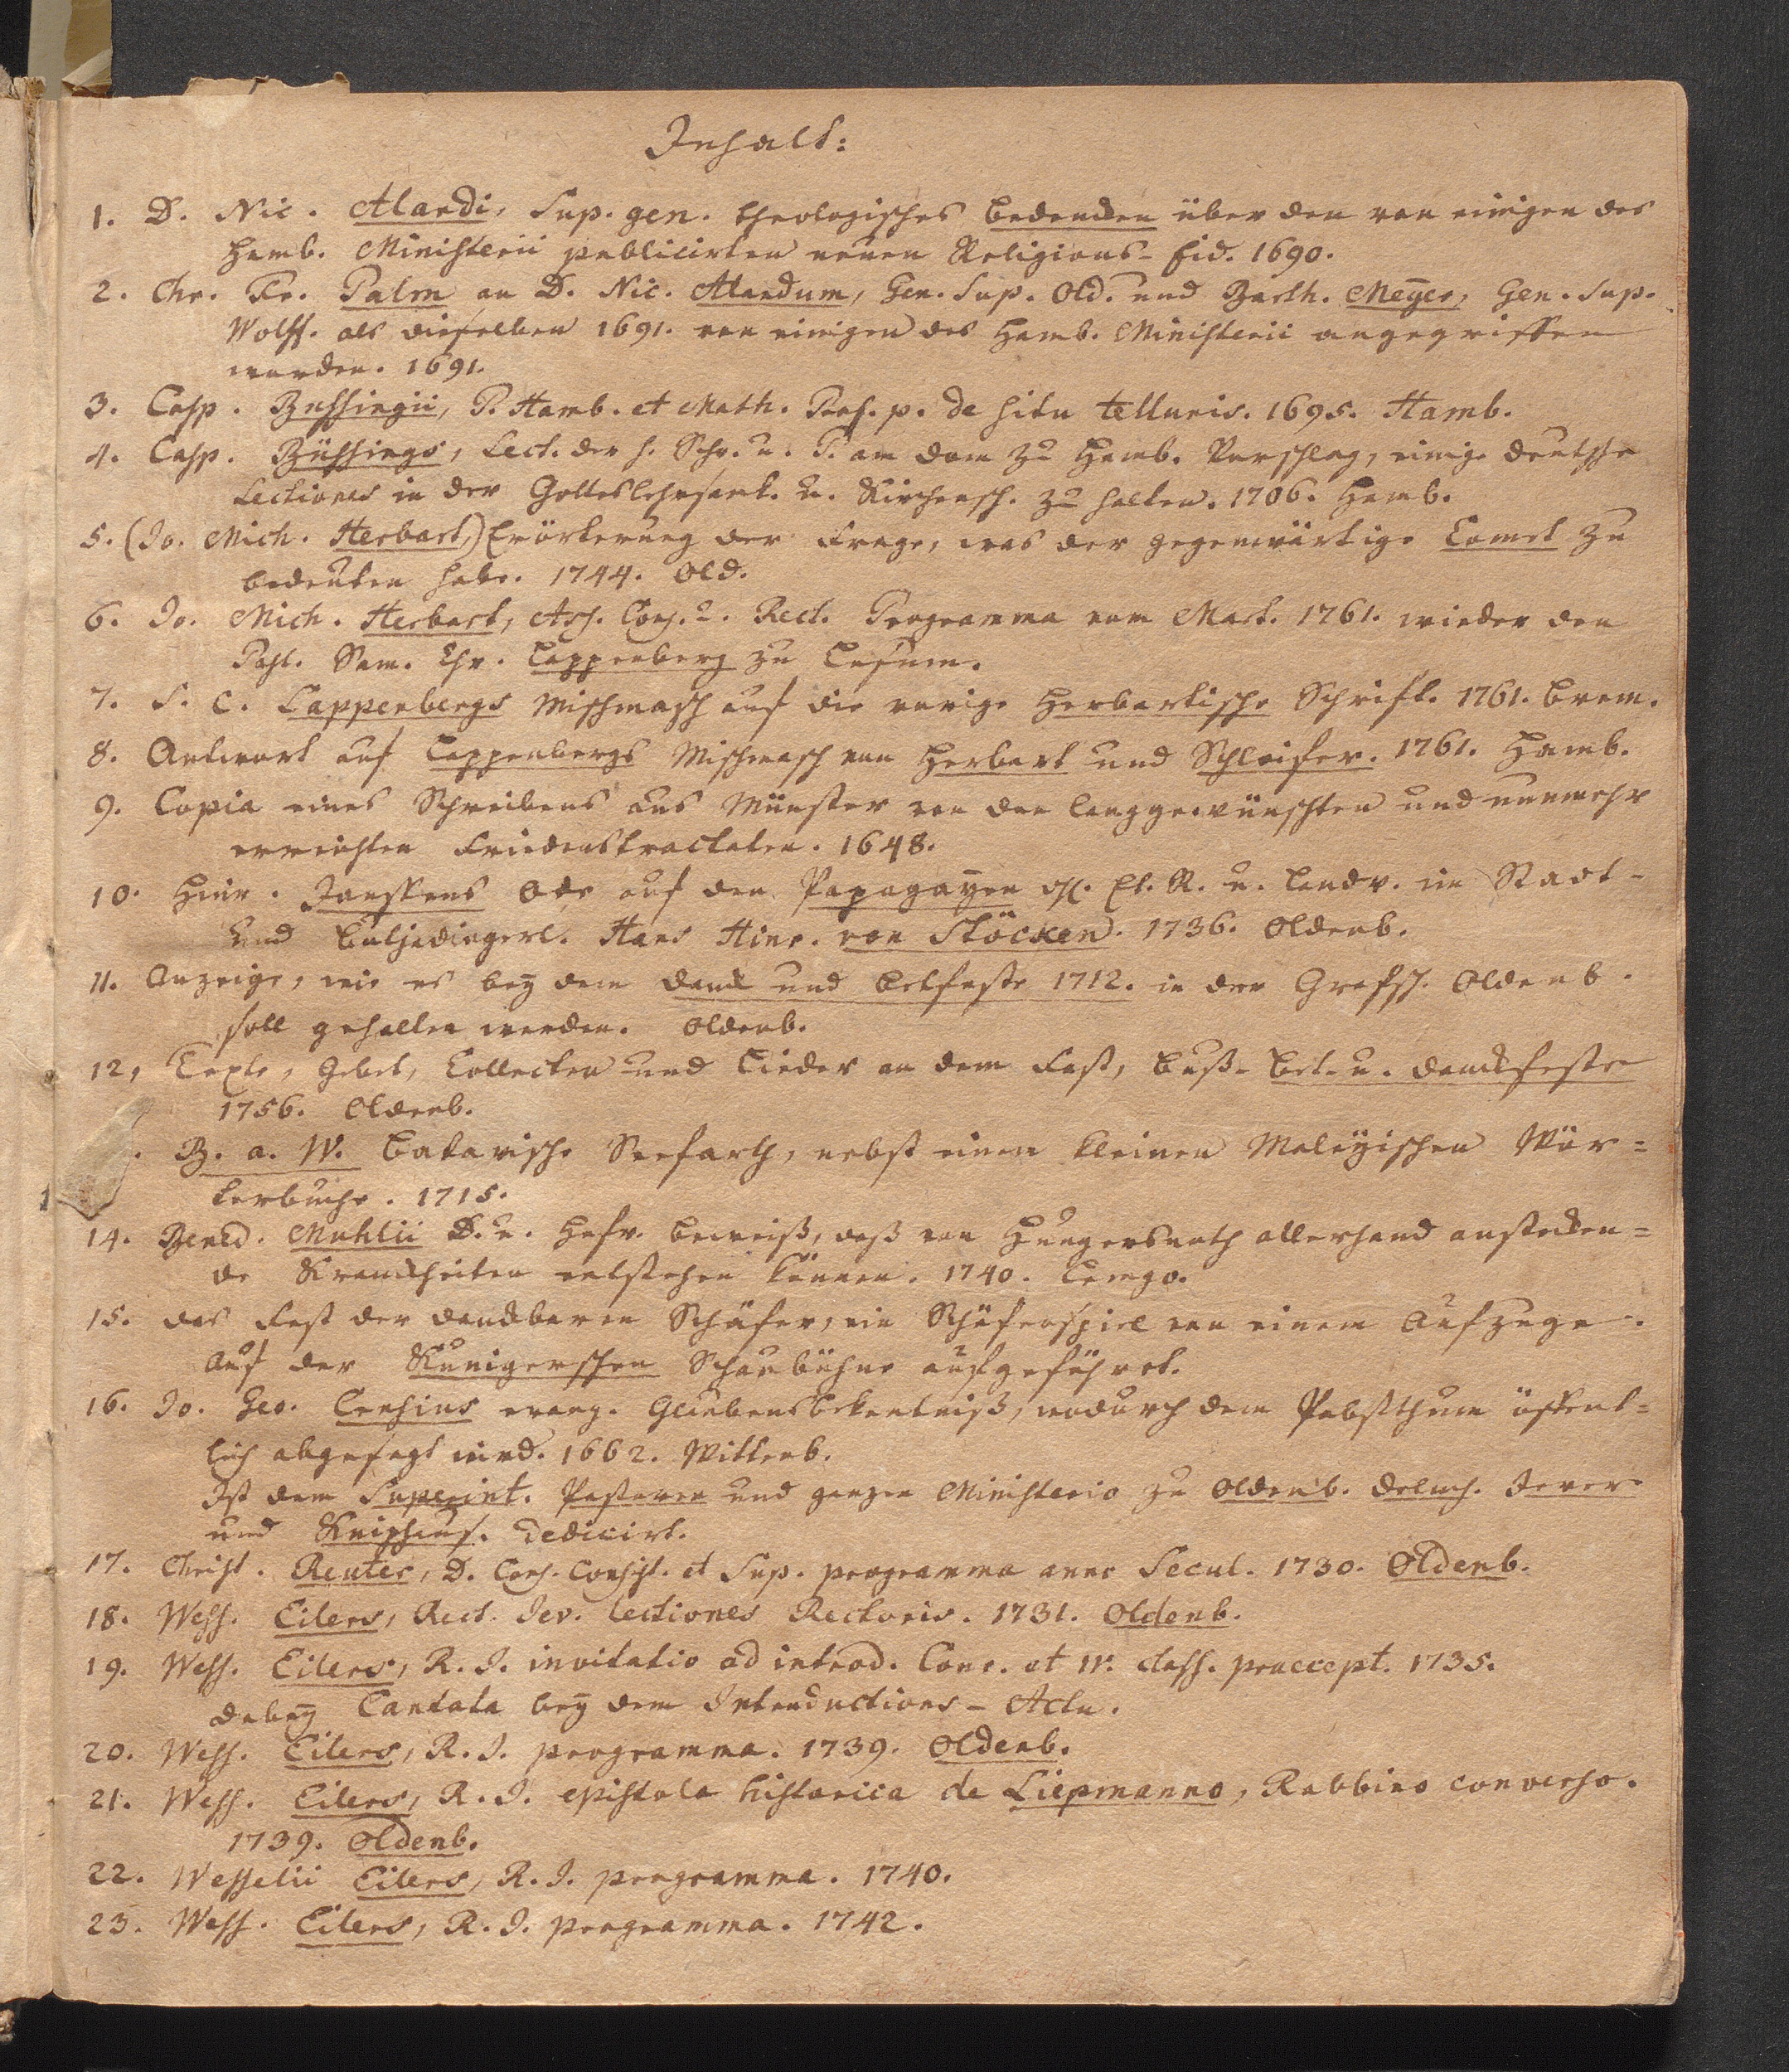 Inhalt:
1. D. Nic. Alardi, Sup. gen. theologisches Bedencken über den von einigen des
Hamb. Ministerii publicirten neuen Religions-Eid. 1690.
2. Chr. Fr. Palm an D. Nic. Alardum, Gen. Sup. Old. und Barth. Meyer, Gen. Sup.
Wolff. als dieselben 1691. von einigen des Hamb. Ministerii angegriffen
wurden. 1691.
3. Casp. Bussingii, P. Hamb. et Math. Prof. p. de situ telluris. 1695. Hamb.
4. Casp. Büssings, Lect. der h. Schr. u. P. am Dom zu Hamb. Vorschlag, einige deutsche
Lectiones in der Gottesgelahrt. u. Kirchensch. zu halten. 1706. Hamb.
5. (Jo. Mich. Herbart,) Erörterung der Frage, was der gegenwärtige Comet zu
bedeuten habe. 1744. Old.
6. Jo. Mich. Herbart, Ass. Cons. u. Rect. Programma vom Mart. 1761. wieder den
Past. Sam. Chr. Lappenberg zu Lesum.
7. S. C. Lappenbergs Mischmasch auf die vorige Herbartische Schrift. 1761. Brem.
8. Antwort auf Lappenbergs Mischmasch von Herbart und Schleifer. 1761. Hamb.
9. Copia eines Schreibens aus Münster von den langgewünschten und nunmehr
errichten Friedenstractaten. 1648.
10. Hinr. Janssens Ode auf den Papagayen des Et. R. u. Landv. im Stadt-
und Butjadingerl. Hans Hinr. von Stöcken. 1736. Oldenb.
11. Anzeige, wie es bey dem Danck und Betfeste 1712. in der Grafsch. Oldenb.
soll gehalten werden. Oldenb.
12, Texte, Gebet, Collecten und Lieder an dem Fast, Buß- Bet- u. Danckfeste
1756. Oldenb.
. B. a. W. Batavische Seefarth, nebst einem kleinen Maleyischen Wör=
terbuche. 1715.
14. Bened. Muhlii D. u. Hofr. Beweiß, daß von Hungersnoth allerhand anstecken=
de Kranckheiten entstehen können. 1740. Lemgo.
15. Das Fest der danckbaren Schäfer, ein Schäferspiel von einem Aufzuge.
Auf der Kunigerschen Schaubühne aufgeführet.
16. Jo. Geo. Censius evang. Glaubensbekentniß, wodurch dem Pabstthum öffent=
lich abgesagt wird. 1662. Wittenb.
Ist dem Superint. Pastoren und ganzen Ministerio zu Oldenb. Delm. Jever
und Kniphaus. dedicirt.
17. Christ. Reuter, D. Cons. Consist. et Sup. programma anno Secul. 1730. Oldenb.
18. Wess. Eilers, Rect. Jev. lectiones Rectoris. 1731. Oldenb.
19. Wess. Eilers, R. J. invitatio ad introd. Conr. et IV. class. praecept. 1735.
dabey Cantata bey dem Introductions-Actu.
20. Wess. Eilers, R. J. programma. 1739. Oldenb.
21. Wess. Eilers, R. J. epistola historica de Liepmanno, Rabbino converso.
1739. Oldenb.
22. Wesselii Eilers, R. J. programma. 1740.
23. Wess. Eilers, R. J. programma. 1742.